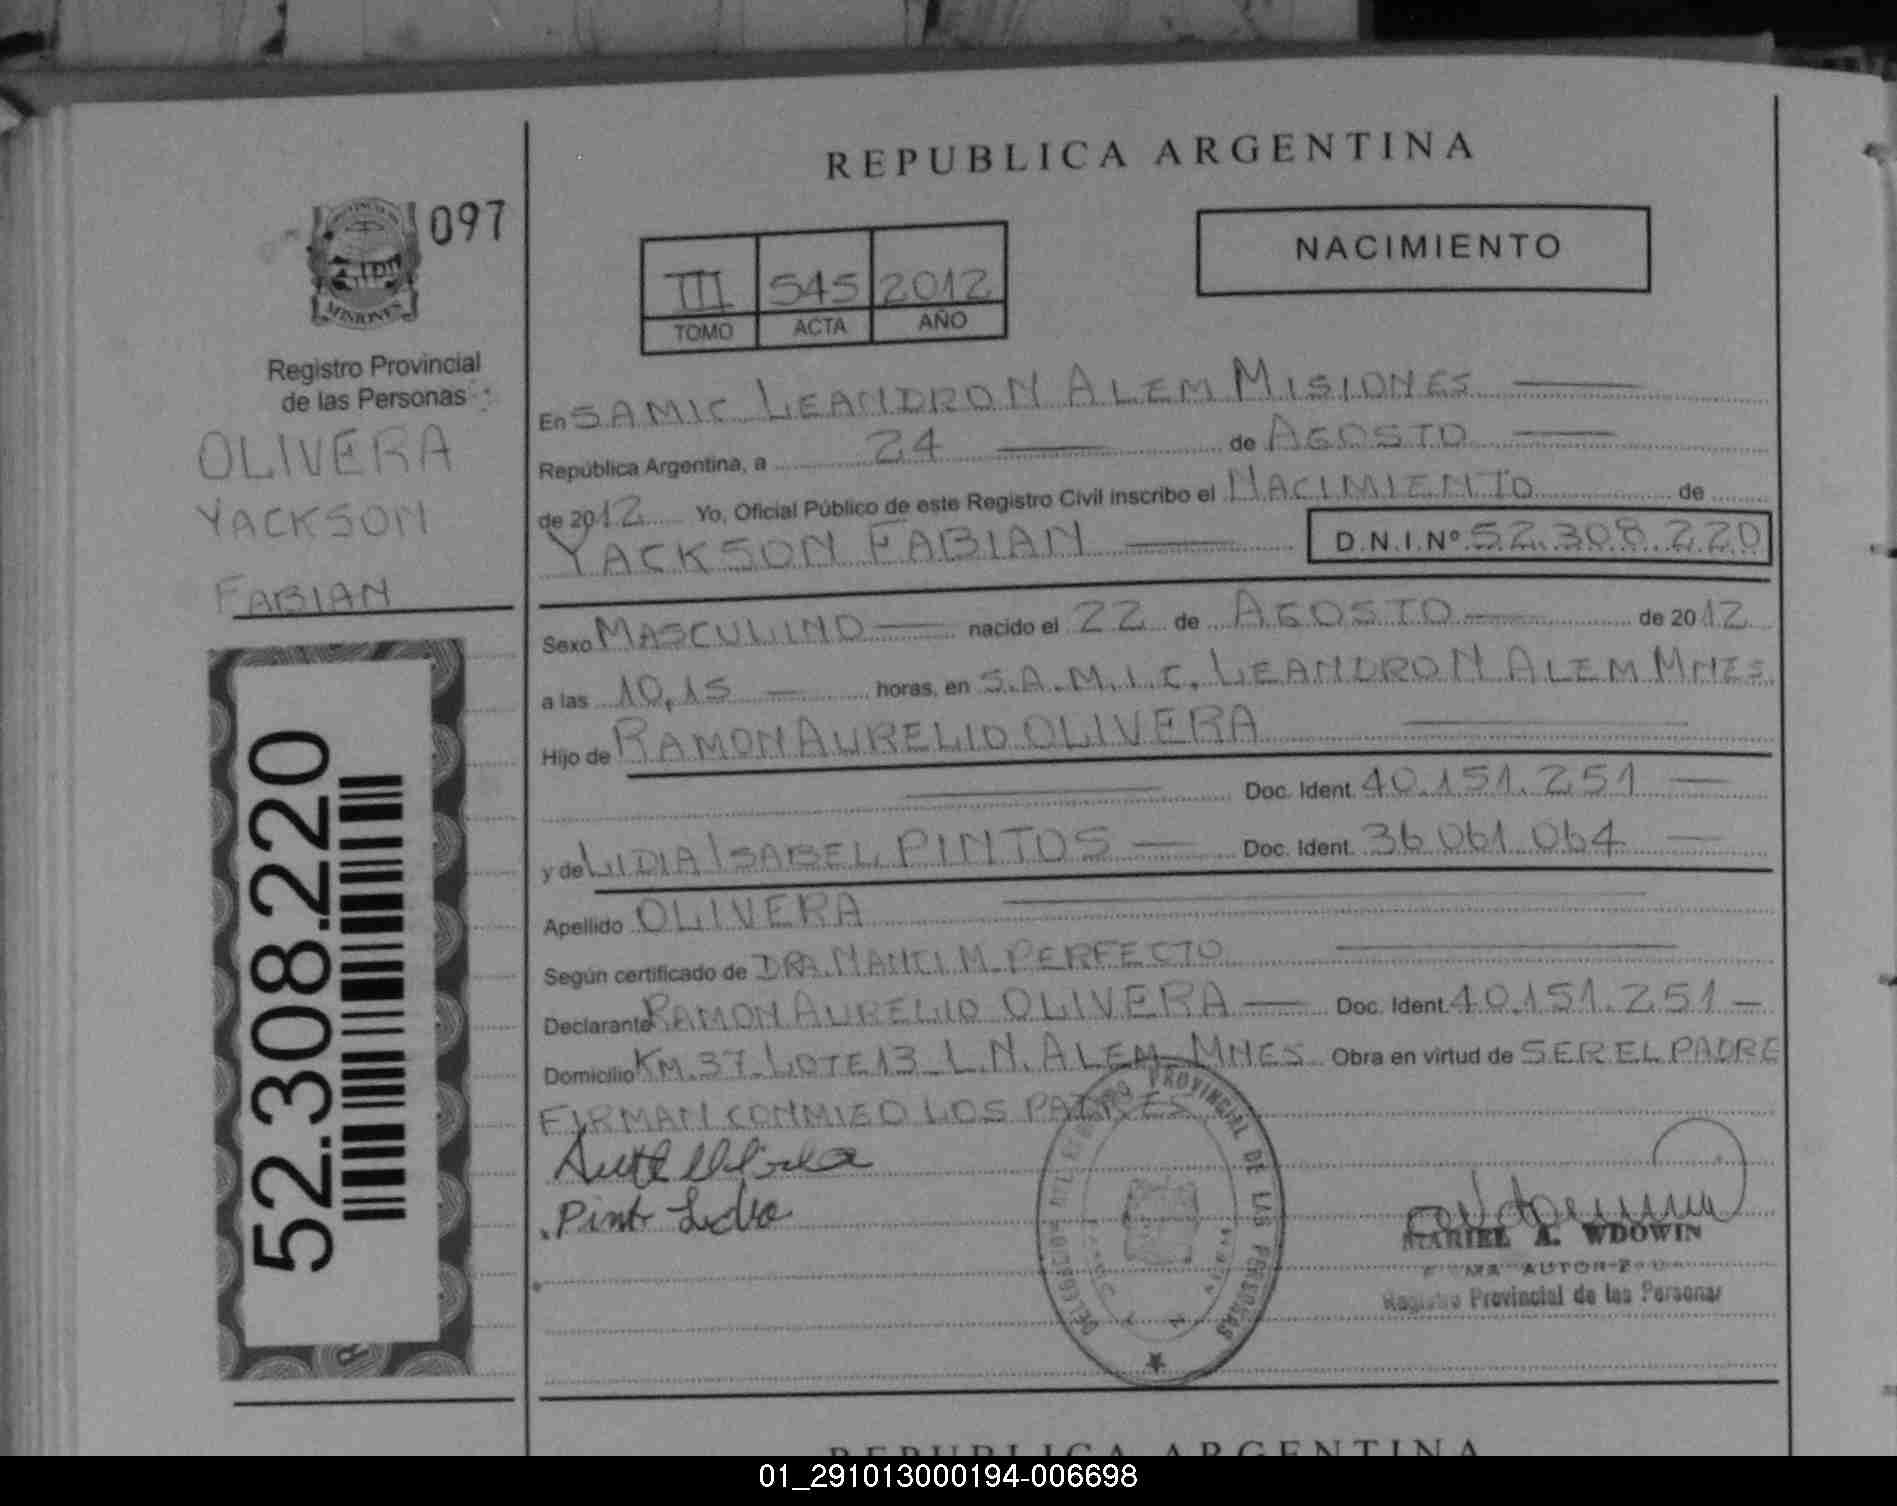 REPUBLICA ARGENTINA
097
MISIONES
Registro Provincial
de las Personas
OLIVERA
YACKSON
FABIAN
52.308.220
III 545 2012
TOMO ACTA AÑO
NACIMIENTO
En SAMIC LEANDRO N ALEM MISIONES
República Argentina, a 24 de AGOSTO
de 2012 Yo, Oficial Público de este Registro Civil inscribo el NACIMIENTO de
YACKSON FABIAN D.N.I.Nº 52.308.220
Sexo MASCULINO nacido el 22 de AGOSTO de 2012
a las 10,15 horas, en S.A.M.I.C. LEANDRO N ALEM MNES.
Hijo de RAMON AURELIO OLIVERA
Doc. Ident. 40.151.251
y de LIDIA ISABEL PINTOS Doc. Ident. 36.061.064
Apellido OLIVERA
Según certificado de DRA. NANCI M. PERFECTO
Declarante RAMON AURELIO OLIVERA Doc. Ident. 40.151.251
Domicilio KM. 37 LOTE 13 L.N. ALEM MNES Obra en virtud de SER EL PADRE
FIRMAN CONMIGO LOS PADRES
Pinto Lidia
PROVINCIAL DE LAS PERSONAS
MARIEL A. WDOWIN
Registro Provincial de las Personas
REPUBLICA ARGENTINA
01_291013000194-006698